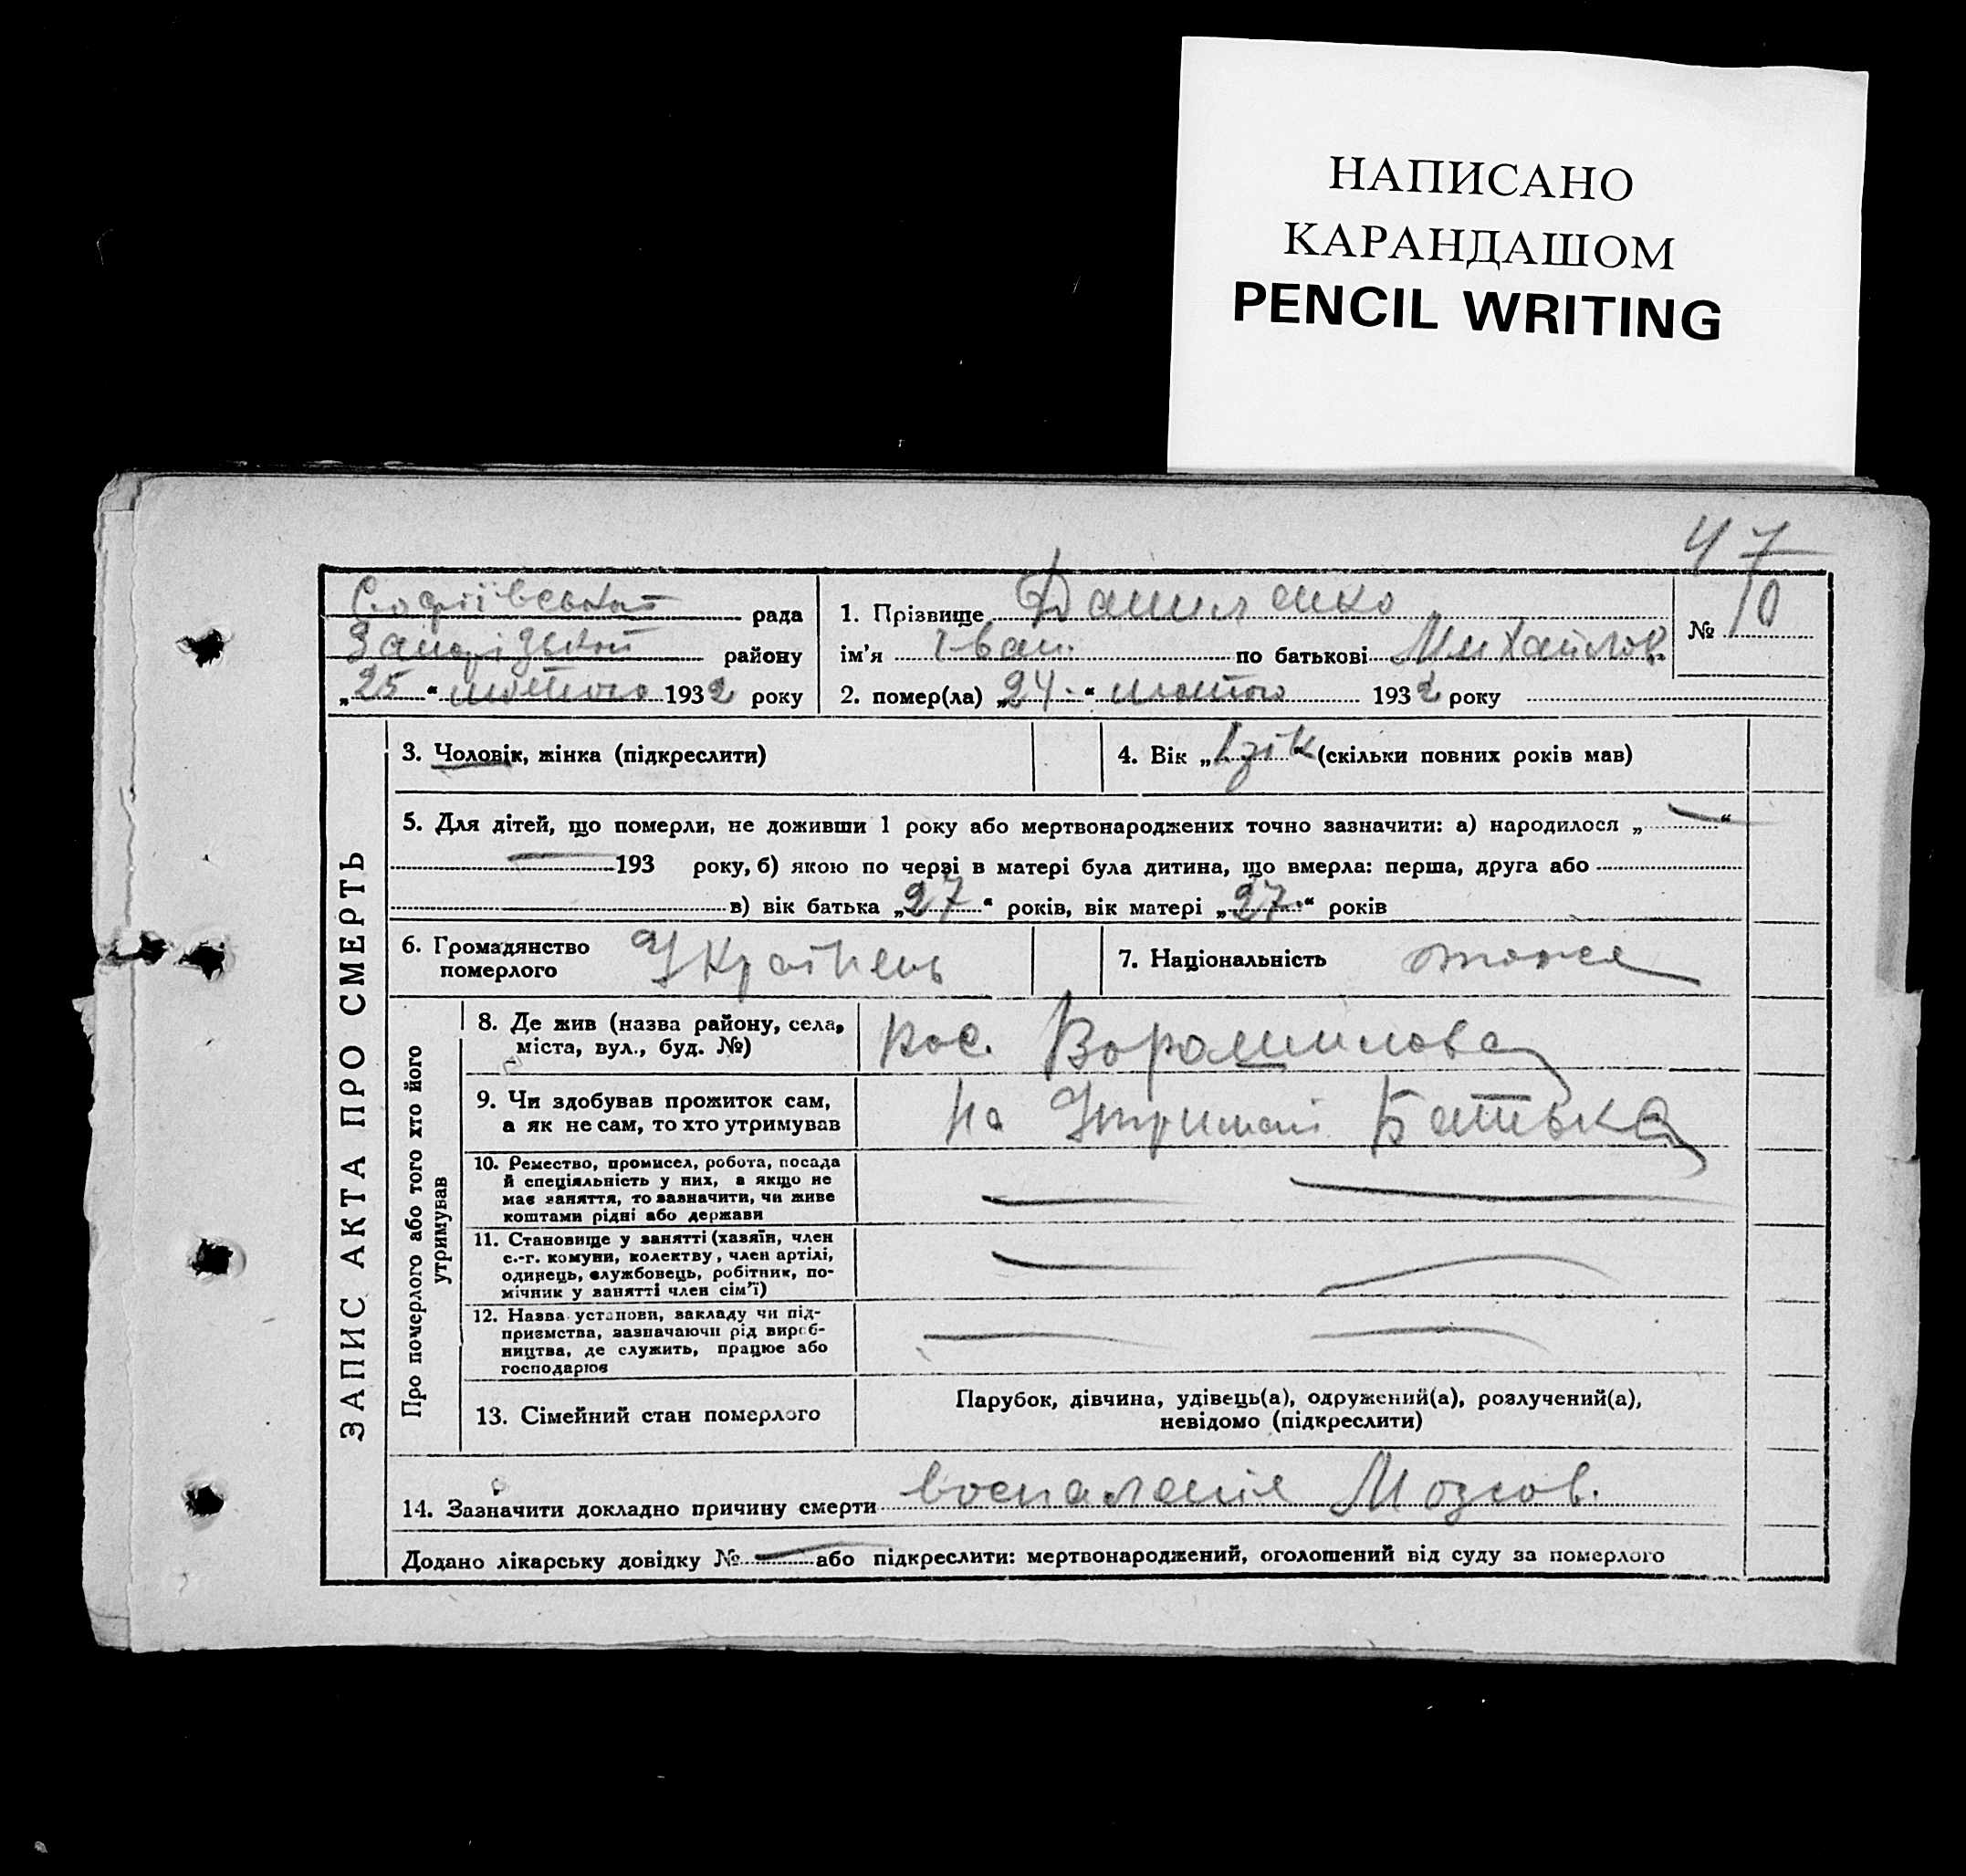 НАПИСАНО
КАРАНДАШОМ
PENCIL WRITING
47
Софіївської рада
Запорізької району
„25“ лютого 1932 року
1. Прізвище Даниленко
ім’я Іван по батькові Михайлов
№ 10
2. помер(ла) „24“ лютого 1932 року
ЗАПИС АКТА ПРО СМЕРТЬ
3. Чоловік, жінка (підкреслити)
4. Вік „1 рік (скільки повних років мав)
5. Для дітей, що померли, не доживши 1 року або мертвонароджених точно зазначити: а) народилося „ “
193 року, б) якою по черзі в матері була дитина, що вмерла: перша, друга або
в) вік батька „27“ років, вік матері „27“ років
6. Громадянство померлого Українець
7. Національність тоже
Про померлого або того хто його утримував
8. Де жив (назва району, села,
міста, вул., буд. №)
пос. Ворошилова
9. Чи здобував прожиток сам,
а як не сам, то хто утримував
на Утримані Батька
10. Ремество, промисел, робота, посада
й спеціяльність у них, а якщо не
має заняття, то зазначити, чи живе
коштами рідні або держави
11. Становище у занятті (хазяїн, член
с.-г. комуни, колектву, член артілі,
одинець, службовець, робітник, по-
мічник у занятті член сім’ї)
12. Назва установи, закладу чи під-
приємства, зазначаючи рід вироб-
ництва, де служить, працює або
господарює
13. Сімейний стан померлого
Парубок, дівчина, удівець(а), одружений(а), розлучений(а),
невідомо (підкреслити)
14. Зазначити докладно причину смерти воспаленіе Мозгов.
Додано лікарську довідку № або підкреслити: мертвонароджений, оголошений від суду за померлого